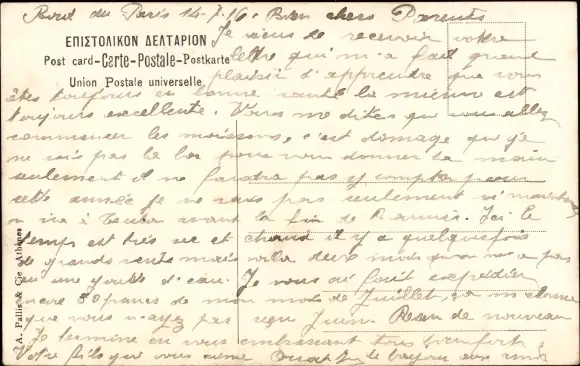 Bord du Paris 14-7-16. Bien chers Parents
ΕΠΙΣΤΟΛΙΚΟΝ ΔΕΛΤΑΡΙΟΝ
Post card-Carte-Postale-Postkarte
Union Postale universelle
Je viens de recevoir votre
lettre qui m'a fait grand
plaisir d'apprendre que vous
êtes toujours en bonne santé la mienne est
toujours excellente. Vous me dites que vous allez
commencer les moissons, c'est domage que je
ne suis pas la bas pour vous donner la main
seulement il ne faudra pas y compter pour
cette année je ne sais pas seulement si
on ira à avant la fin de Jai le
temps est très sec et chaud il y a quelquefois
de grands vents mais voila deux mois qu'on n'a pas
eu une goutte d'eau. Je vous ai fait expedier
encore 50 francs de mon mois de Juillet,
que vous n'ayez pas reçu Juin. Rien de nouveau
Je termine en vous embrassant tous bien fort.
Votre fils qui vous aime
A. Pallis & Cie Athènes